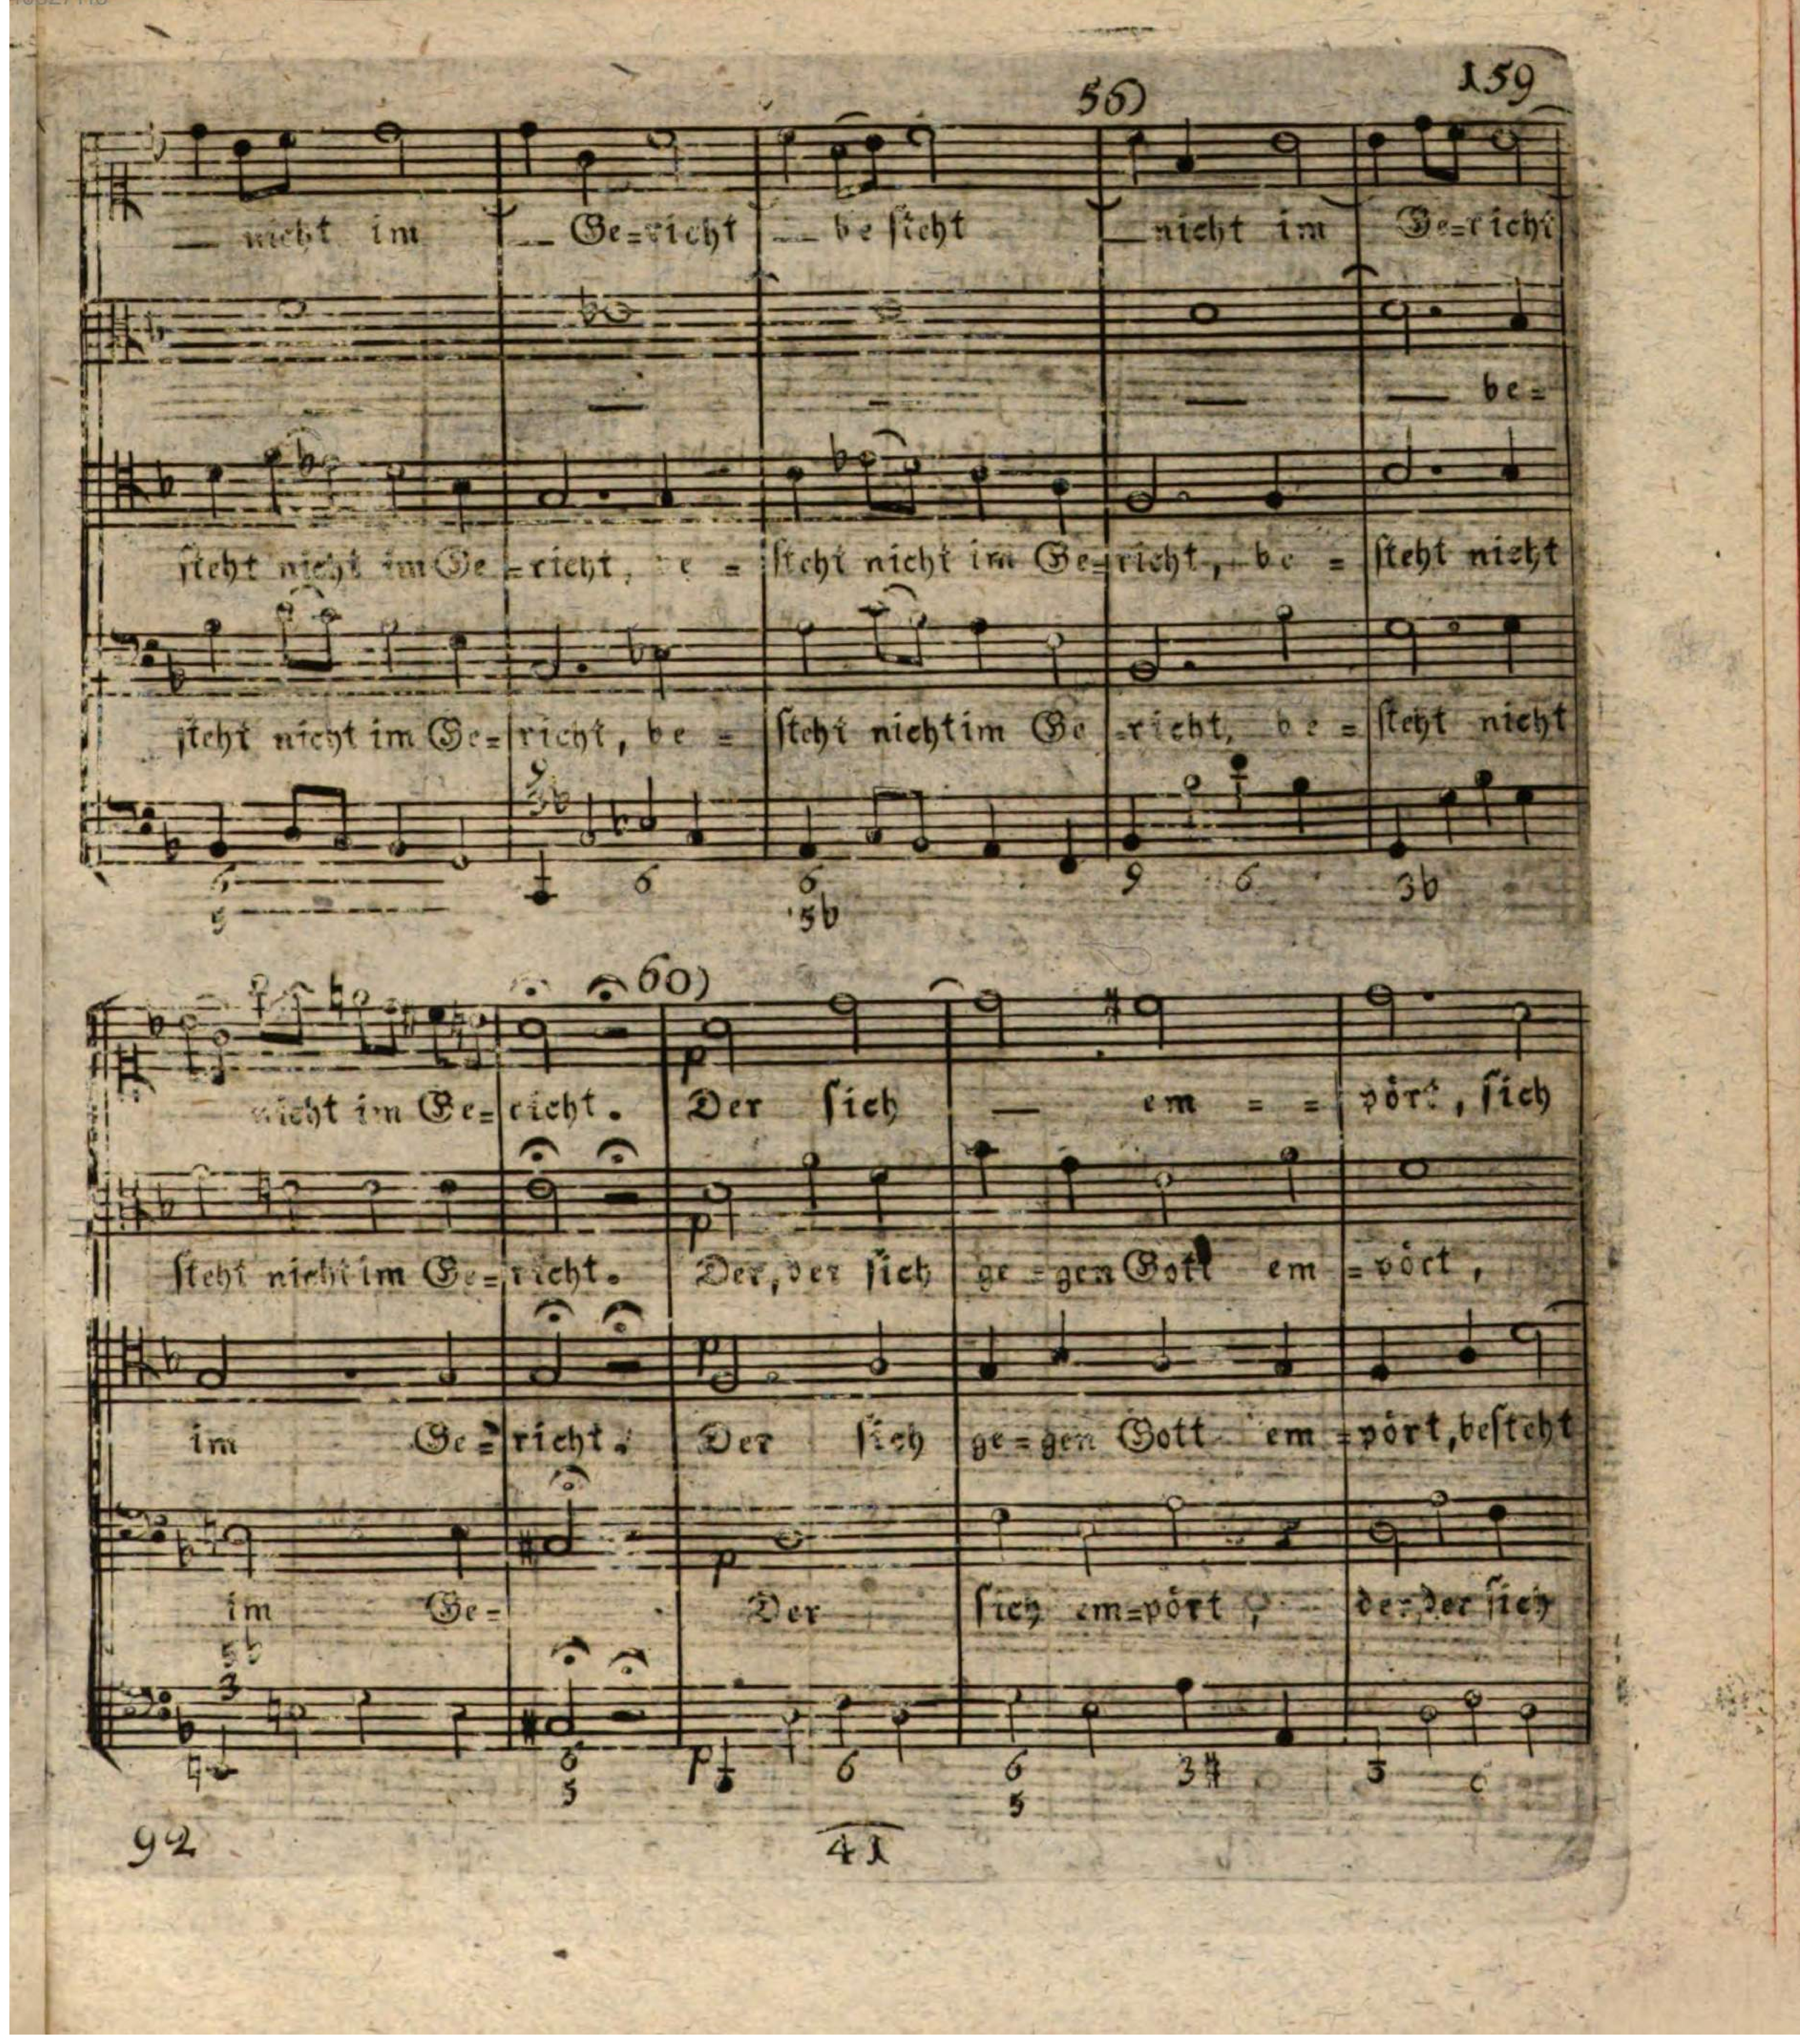 56) 159
— nicht im — Ge=richt — besteht — nicht im Ge=richt
— — — — be=
steht nicht im Ge=richt, be = steht nicht im Ge=richt, be = steht nicht
steht nicht im Ge=richt, be = steht nicht im Ge=richt, be = steht nicht
6 6 6 9 6 3b
5 5b
60)
nicht im Ge=richt. Der sich — em = = pört, sich
p
steht nicht im Ge=richt. Der, der sich ge=gen Gott em=pört,
p
im Ge=richt. Der sich ge=gen Gott em=pört, besteht
p
im Ge= Der sich em=pört, der, der sich
p
5b
3
6 p 6 6 3# 3 6
5 5
92 41